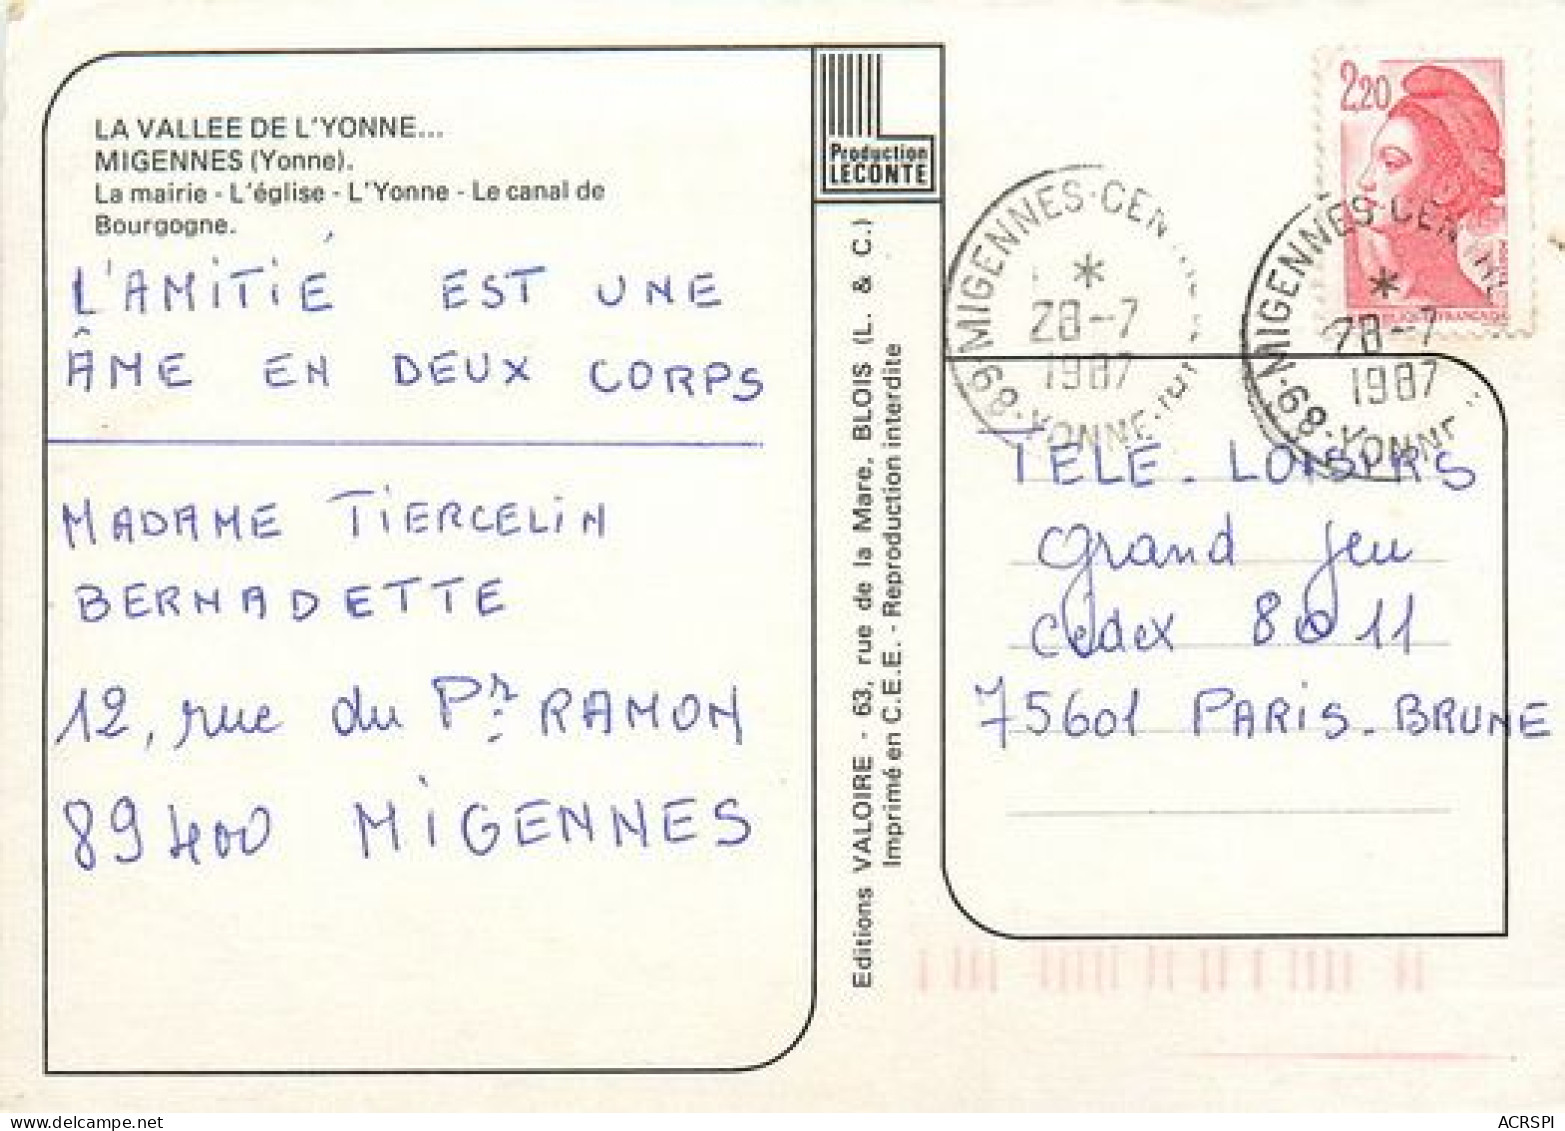 LA VALLEE DE L'YONNE...
MIGENNES (Yonne).
La mairie - L'église - L'Yonne - Le canal de
Bourgogne.
L'AMITIÉ EST UNE
ÂME EN DEUX CORPS
MADAME TIERCELIN
BERNADETTE
12, rue du Pr. RAMON
89400 MIGENNES
Production
LECONTE
Editions VALOIRE - 63, rue de la Mare, BLOIS (L. & C.)
Imprimé en C.E.E. - Reproduction interdite
2,20
89-MIGENNES-CEN
YONNE
*
28-7
1987
89-MIGENNES-CEN
YONNE
*
28-7
1987
TÉLÉ-LOISIRS
Grand jeu
Cedex 8011
75601 PARIS-BRUNE
ACRSPI